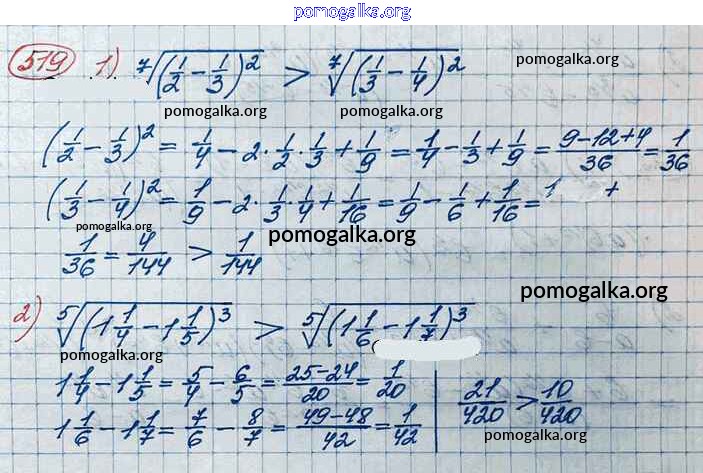 pomogalka.org
519 1) ⁷√((1/2 − 1/3)²) > ⁷√((1/3 − 1/4)²)
pomogalka.org
pomogalka.org pomogalka.org
(1/2 − 1/3)² = 1/4 − 2 · 1/2 · 1/3 + 1/9 = 1/4 − 1/3 + 1/9 = (9−12+4)/36 = 1/36
(1/3 − 1/4)² = 1/9 − 2 · 1/3 · 1/4 + 1/16 = 1/9 − 1/6 + 1/16 = 1 +
pomogalka.org
pomogalka.org
1/36 = 4/144 > 1/144
pomogalka.org
2) ⁵√((1 1/4 − 1 1/5)³) > ⁵√((1 1/6 − 1 1/7)³)
pomogalka.org
1 1/4 − 1 1/5 = 5/4 − 6/5 = (25−24)/20 = 1/20
21/420 > 10/420
1 1/6 − 1 1/7 = 7/6 − 8/7 = (49−48)/42 = 1/42
pomogalka.org